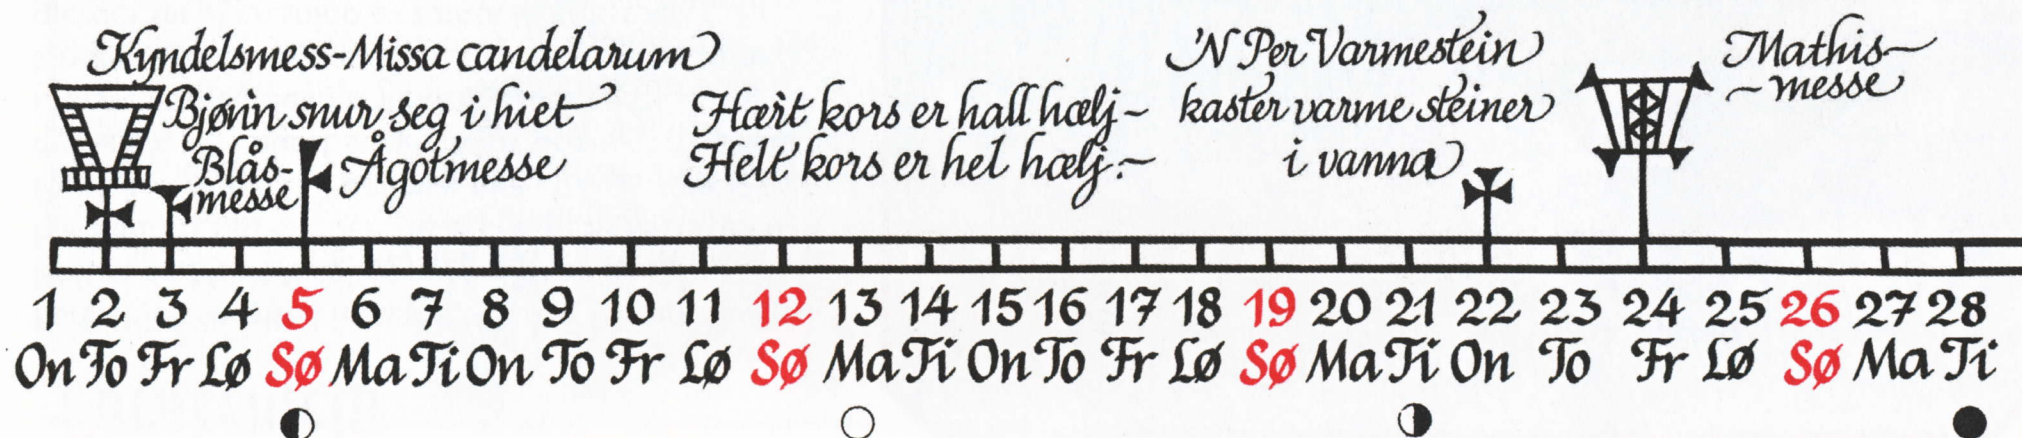 Kyndelsmess-Missa candelarum
Bjørin snur seg i hiet
Blås-
messe
Ågotmesse
Hært kors er hall hælj~
Helt kors er hel hælj.~
'N Per Varmestein
kaster varme steiner
i vanna
Mathis~
~messe
1 2 3 4 5 6 7 8 9 10 11 12 13 14 15 16 17 18 19 20 21 22 23 24 25 26 27 28
On To Fr Lø Sø Ma Ti On To Fr Lø Sø Ma Ti On To Fr Lø Sø Ma Ti On To Fr Lø Sø Ma Ti